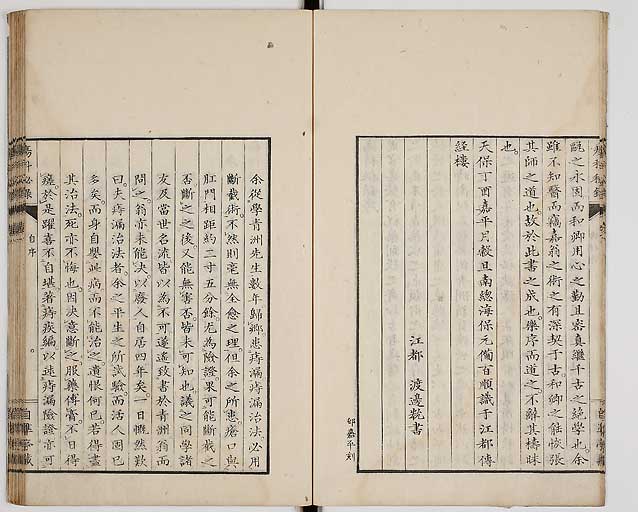 醜之永固而和卿用心之勤且密真繼千古之絶學也余
雖不知醫而竊嘉翁之術之有深契于古和卿之能恢張
其師之道也故於此書之成也樂序而道之不辭其檮昧
也
天保丁酉嘉平月穀旦南總海保元備百順識于江都傳
經樓
江都 渡邊 書
邨嘉平刻
余從學青洲先生數年歸鄉患痔漏痔漏治法必用
斷截術不然則毫無全愈之理但余之所患瘡口與
肛門相距約二寸五分餘尤為險證果可能斷截之
否斷之之後又能無害否皆未可知也議之同學諸
友及當世名流皆以為不可遂遙致書於青洲翁而
問之翁亦未能決以廢人自居四年矣一日慨然歎
曰夫痔漏治法者余之平生之所試驗而活人固已
多矣而身自嬰此病而不能治之遺恨何已若得盡
其治法死亦不悔也因決意斷之服藥傅膏不日得
瘥於是躍喜不自堪著痔疾編以述痔漏險證亦
自序